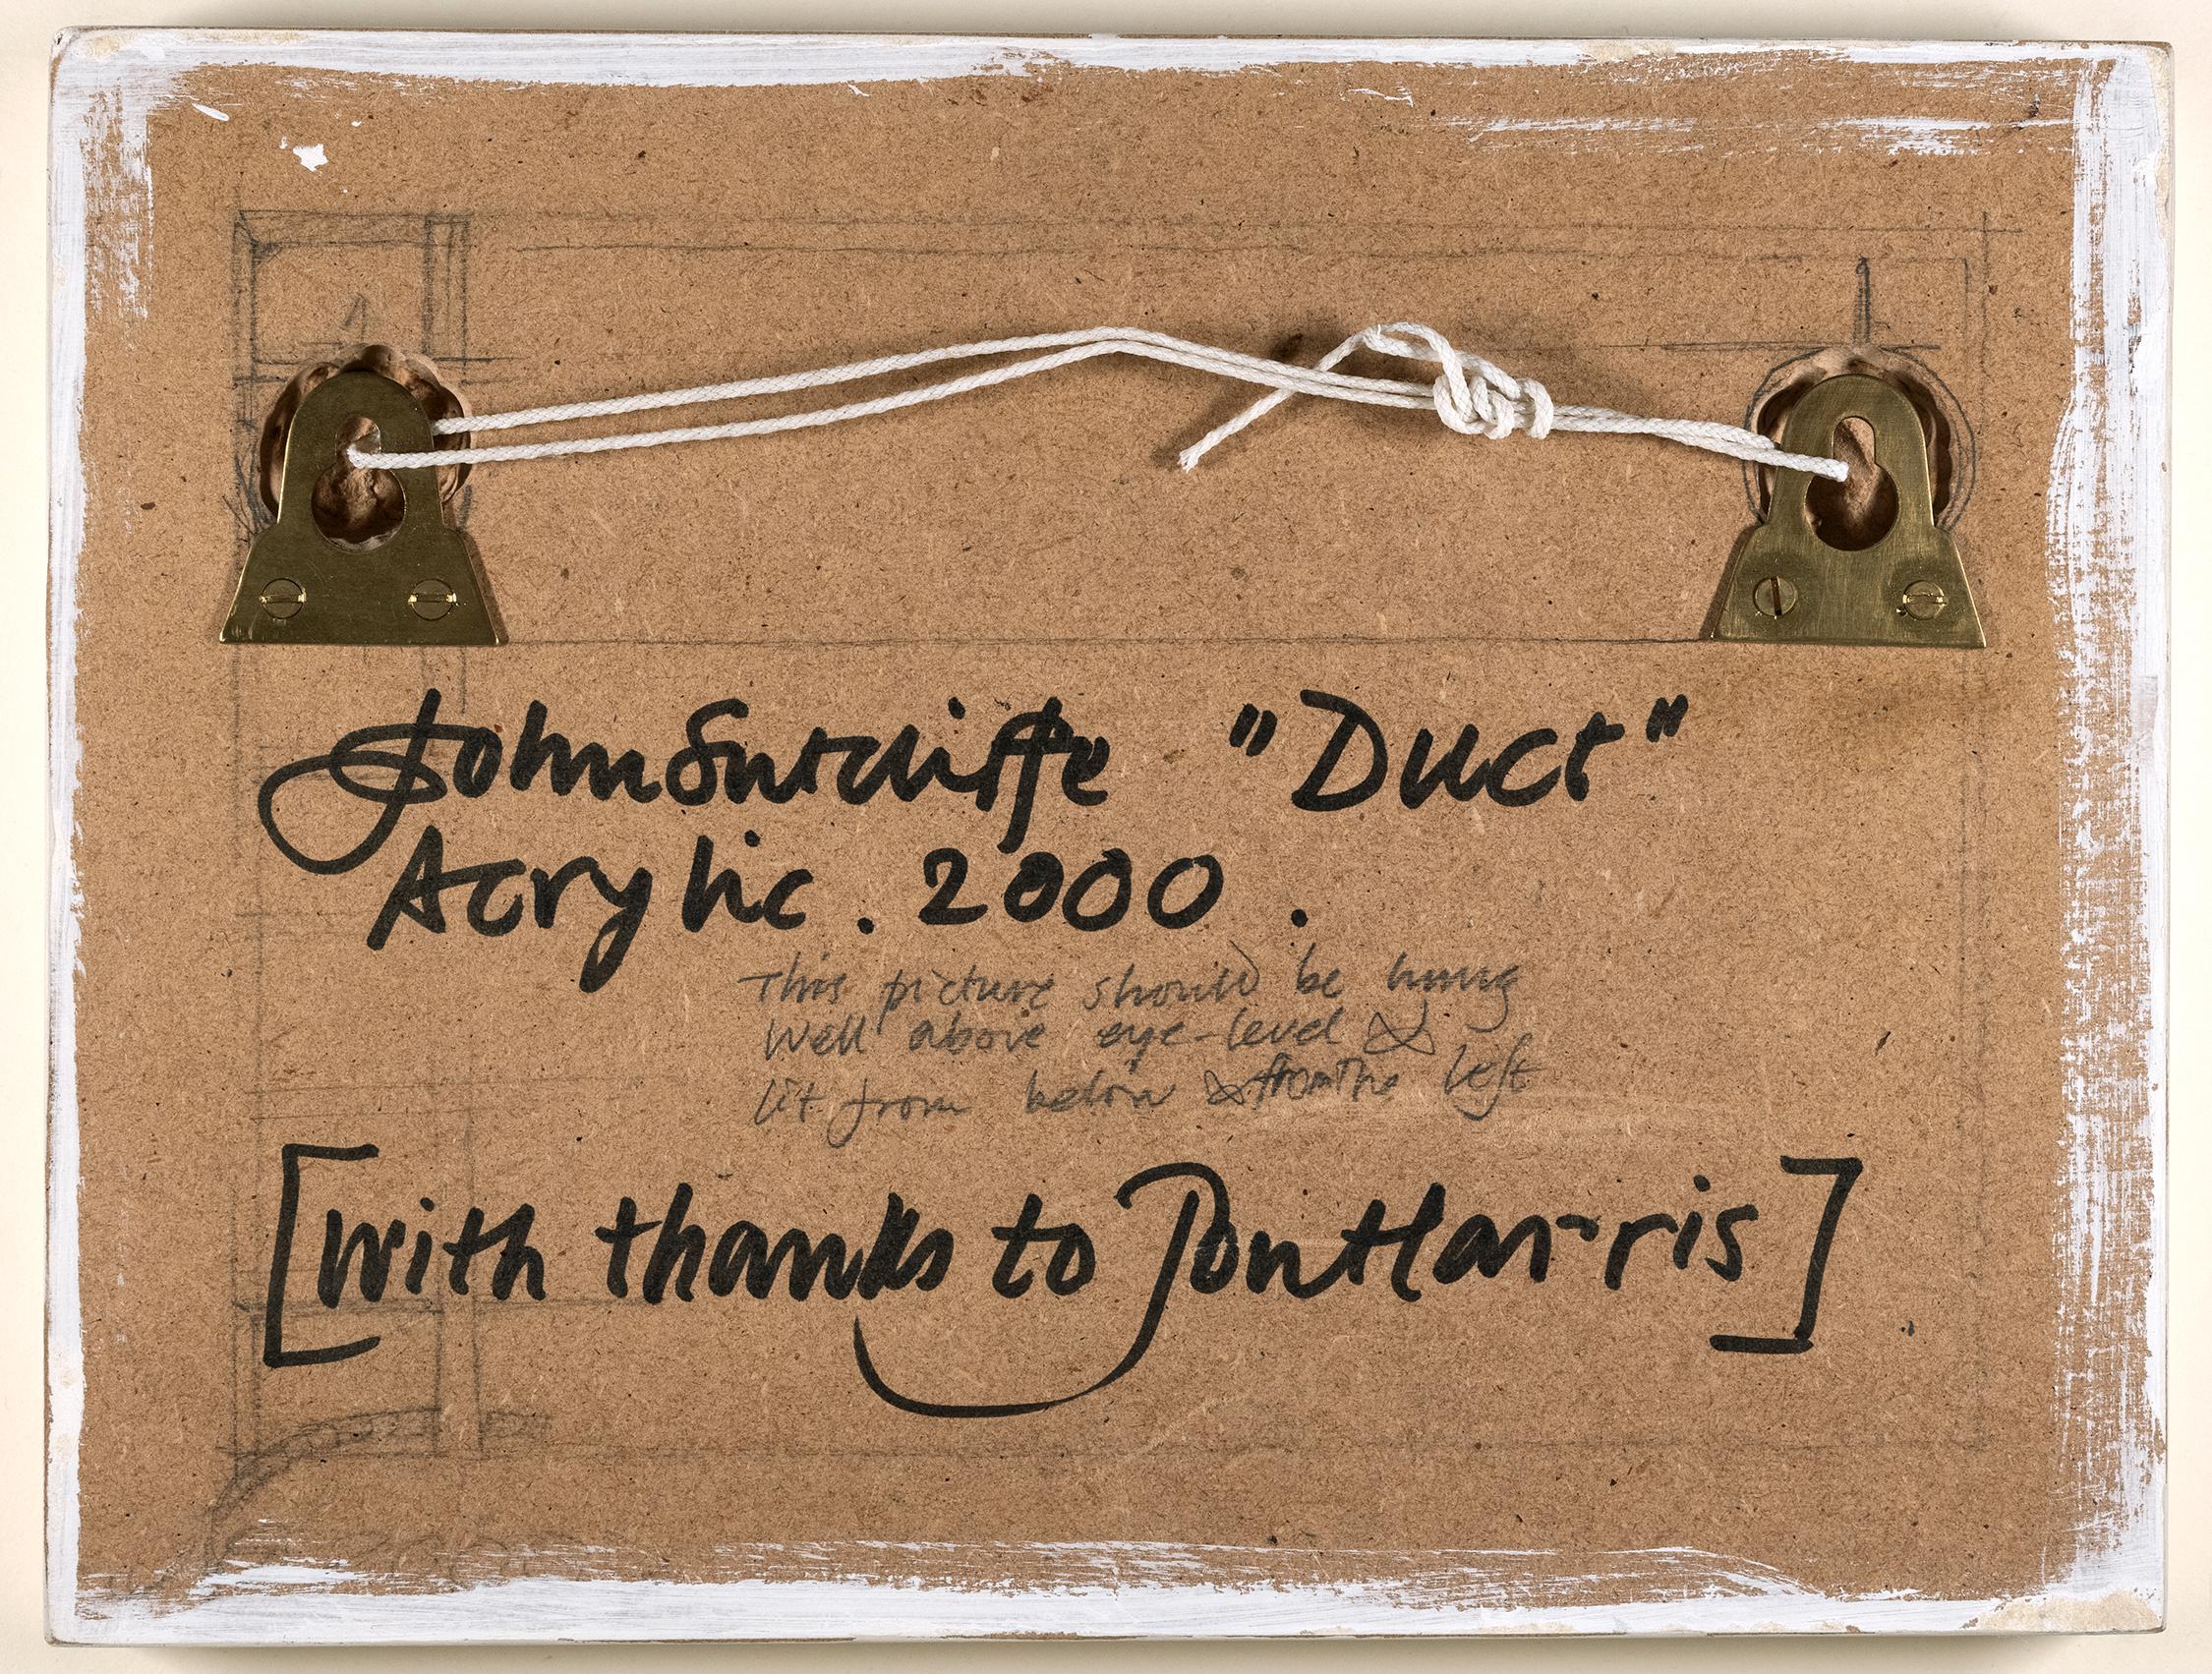 John Sutcliffe "Duct"
Acrylic. 2000.
This picture should be hung
well above eye-level &
lit from below & from the left
[with thanks to Jon Harris]